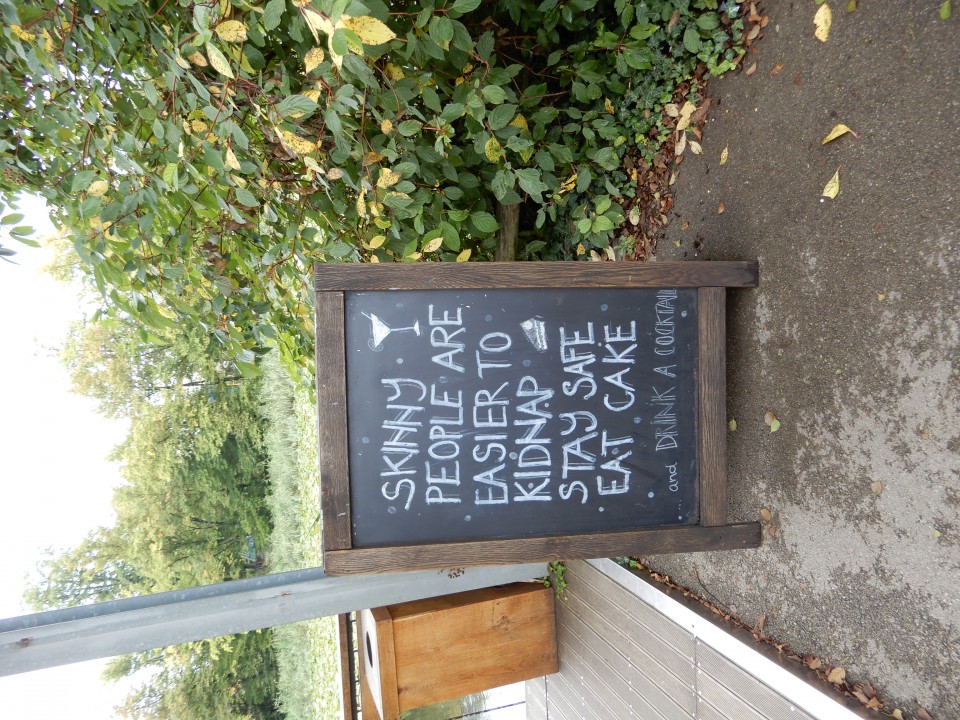 SKINNY
PEOPLE ARE
EASIER TO
KIDNAP
STAY SAFE
EAT CAKE
... and DRINK A COCKTAIL